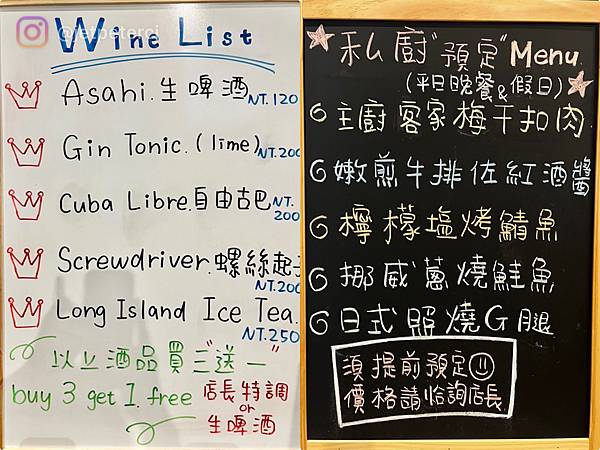 @jetpeterci
Wine List
Asahi.生啤酒 NT.120
Gin Tonic.(lime) NT.200
Cuba Libre.自由古巴 NT.200
Screwdriver.螺絲起子 NT.200
Long Island Ice Tea. NT.250
以上酒品買三"送一"
buy 3 get 1. free 店長特調
or
生啤酒
私廚"預定"Menu
(平日晚餐&假日)
主廚客家梅干扣肉
嫩煎牛排佐紅酒醬
檸檬塩烤鯖魚
挪威蔥燒鮭魚
日式照燒G腿
須提前預定
價格請恰詢店長